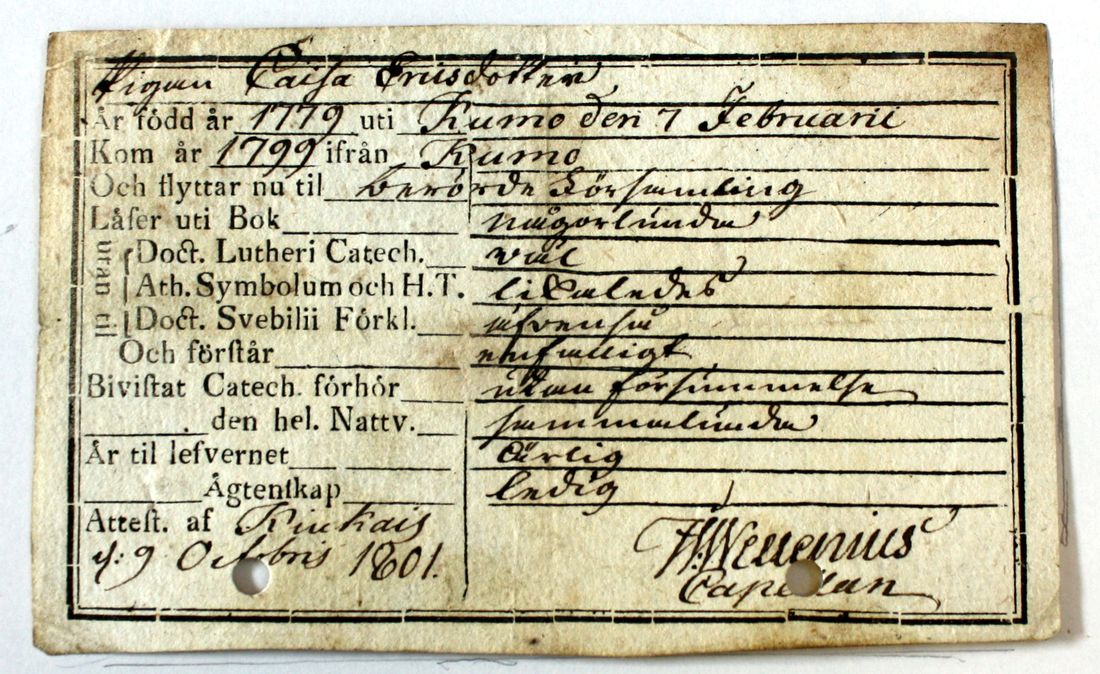 Pigan Caisa Ericsdotter
Är född år 1779 uti Kumo den 7 Februarii
Kom år 1799 ifrån Kumo
Och flyttar nu til berörde Församling
Låser uti Bok någorlunda
utan til
Doct. Lutheri Catech. väl
Ath. Symbolum och H.T. likaledes
Doct. Svebilii Förkl. äfvenså
Och förstår enfaldigt
Bivistat Catech. förhör utan försummelse
den hel. Nattv. sammalunda
Är til lefvernet ärlig
Ägtenskap ledig
Attest. af Kiukais
d: 9 Octobris 1801.
Capellan